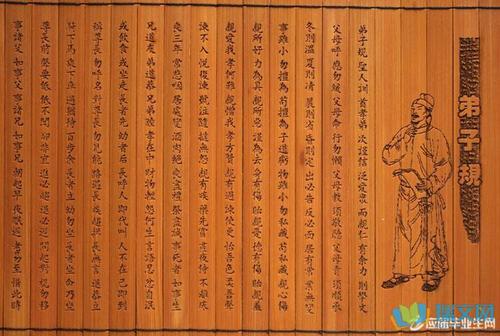 弟子規
弟子規 聖人訓 首孝弟 次謹信 泛愛眾 而親仁 有余力 則學文
父母呼 應勿緩 父母命 行勿懶 父母教 須敬聽 父母責 須順承
冬則溫 夏則清 晨則省 昏則定 出必告 反必面 居有常 業無變
事雖小 勿擅為 苟擅為 子道虧 物雖小 勿私藏 苟私藏 親心傷
親所好 力為具 親所惡 謹為去 身有傷 貽親憂 德有傷 貽親羞
親愛我 孝何難 親憎我 孝方賢 親有過 諫使更 怡吾色 柔吾聲
諫不入 悅復諫 號泣隨 撻無怨 親有疾 藥先嘗 晝夜侍 不離床
喪三年 常悲咽 居處變 酒肉絕 喪盡禮 祭盡誠 事死者 如事生
兄道友 弟道恭 兄弟睦 孝在中 財物輕 怨何生 言語忍 忿自泯
或飲食 或坐走 長者先 幼者后 長呼人 即代叫 人不在 己即到
稱尊長 勿呼名 對尊長 勿見能 路遇長 疾趨揖 長無言 退恭立
騎下馬 乘下車 過猶待 百步余 長者立 幼勿坐 長者坐 命乃坐
尊長前 聲要低 低不聞 卻非宜 進必趨 退必遲 問起對 視勿移
事諸父 如事父 事諸兄 如事兄 朝起早 夜眠遲 老易至 惜此時
瑞文网
@应届毕业生网